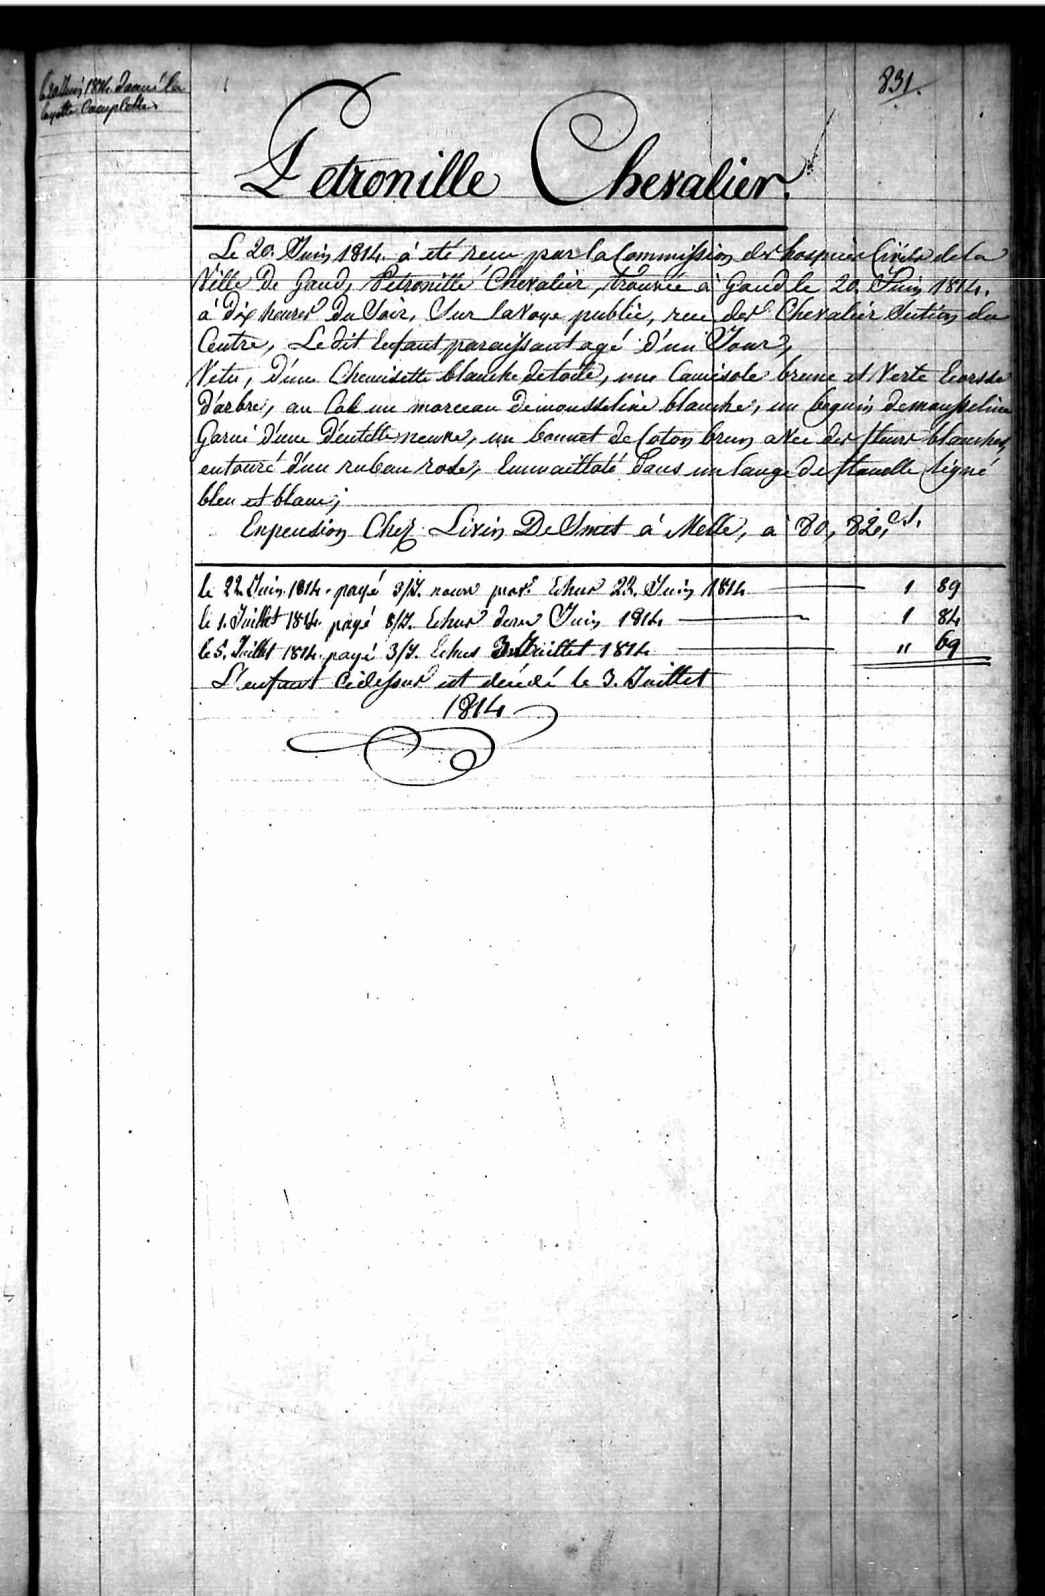 Le 20 Juin 1814. Donné la
layette Complette.
831.
Petronille Chevalier.
Le 20. Juin 1814. à été recu par la Commission des hospices Civils de la
Ville De Gand, Petronille Chevalier, trouvée à Gand le 20. Juin 1814.
à dix heures Du Soir, Sur la Voye public, rue des Chevalier Section du
Centre, Le dit Enfant paraissant agé D'un Jour,
Vetu, D'une Chemisette blanche de toile, une Camisole brune et Verte Ecorsse
D'arbre, au Col un morceau De mousseline blanche, un beguin de mousseline
Garni D'une Dentelle neuve, un bonnet de Coton brun avec des fleurs blanches,
entouré D'un ruban rose, Emmailloté Dans un lange de flanelle ligné
bleu et blanc;
En pension Chez Livin De Smet à Melle, à 80, 82, cs.
le 22 Juin 1814. payé 3/J. nourr Echus 22. Juin 1814 1 89
le 1. Juillet 1814. payé 8/J. Echus dern Juin 1814 1 84
le 5. Juillet 1814. payé 3/J. Echus 3 Juillet 1814 " 69
L'enfant Cidessus est décédé le 3. Juillet
1814